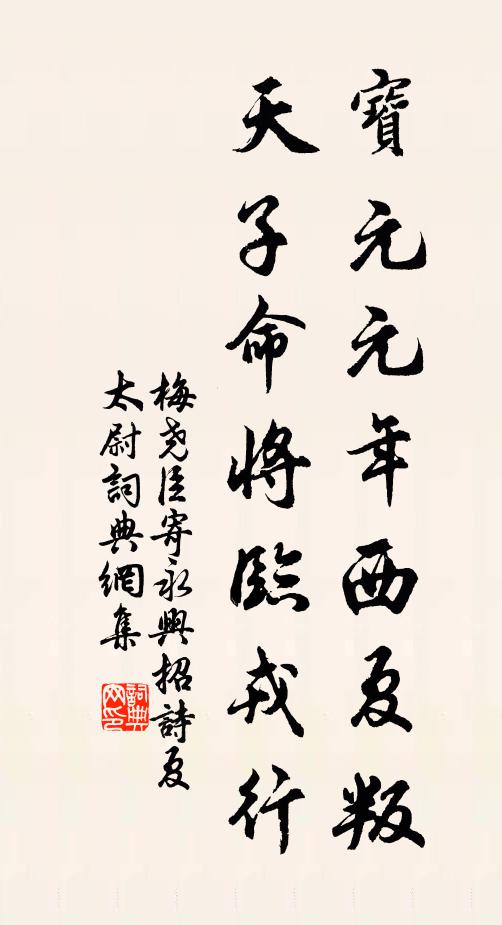 寶元元年西夏叛
天子命將臨戎行
梅堯臣寄永興招詩夏
太尉詞典網集
詞典网印